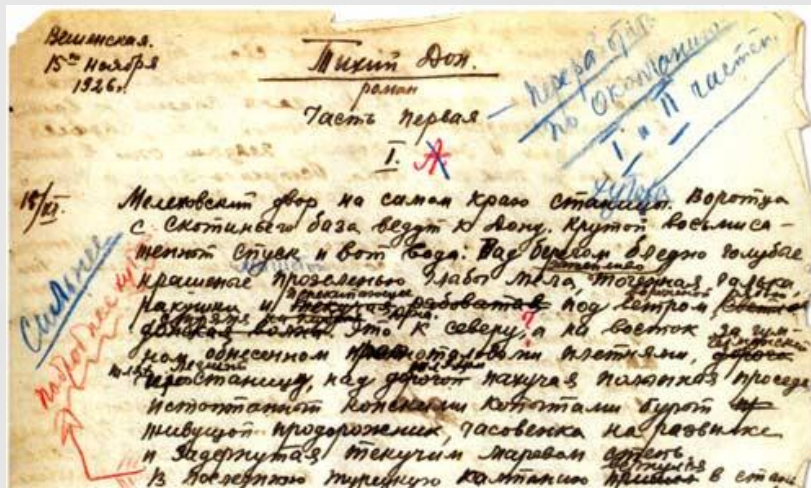 Вешенская.
15го ноября
1926г.
Тихий Дон.
роман
Часть первая
I. А.
— перераб от.
по окончании
I и II частей.
15/XI.
хутора
Мелеховский двор на самом краю станицы. Воротца
с скотиньего база ведут к Дону. Крутой восьмиса-
женный спуск и вот вода: Над берегом бледно голубые,
крашеные прозеленью глыбы мела,
галька,
ракушки и
под ветром,
донская волна. Это к северу, а на восток за гум-
ном, обнесенном
плетнями,
станицу, над дорогой пахучая полынная проседь
истоптанный конскими копытами бурый
живущой придорожник, часовенка на развилке
и задернутая текучим маревом степь
В последнюю турецкую кампанию
в стани
Сильнее
подробнее
?